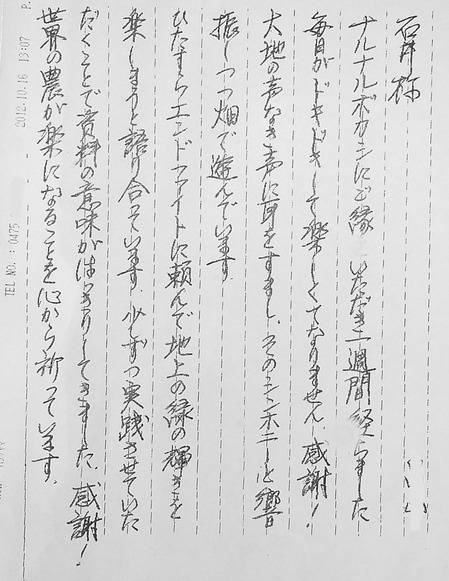 石井様
ナルナルボカシにご縁いただき一週間経ちました
毎日がドキドキして楽しくてなりません。感謝！
大地の声なき声に耳をすまし、そのシンホニーと響
振しつつ畑で遊んでいます。
ひたすらエンドファイトに頼んで地上の緑の輝きを
楽しもうと語り合っています。少しずつ実践させていた
だくことで資料の意味がはっきりしてきました。感謝！
世界の農が楽になることを心から祈っています。
2012.10.16 13:07 P.
TEL NO. : 0475